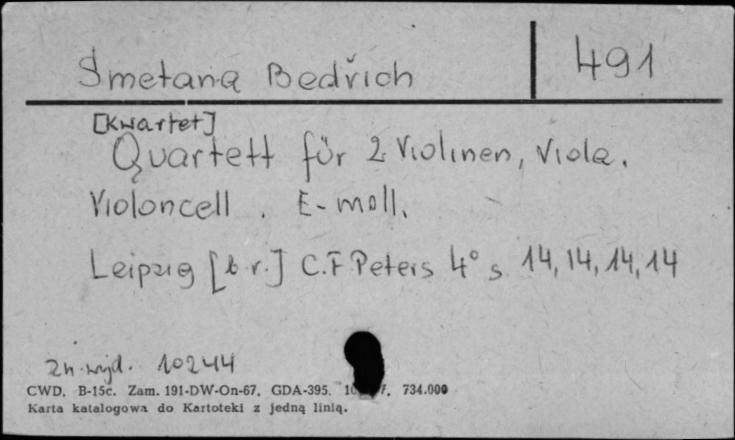 Smetana Bedřich 491
[Kwartet]
Quartett für 2 Violinen, Viola,
Violoncell. E-moll.
Leipzig [b r.] C.F Peters 4° s 14, 14, 14, 14
zn. wyd. 10244
CWD. B-15c. Zam. 191-DW-On-67. GDA-395. 734.000
Karta katalogowa do Kartoteki z jedną linią.